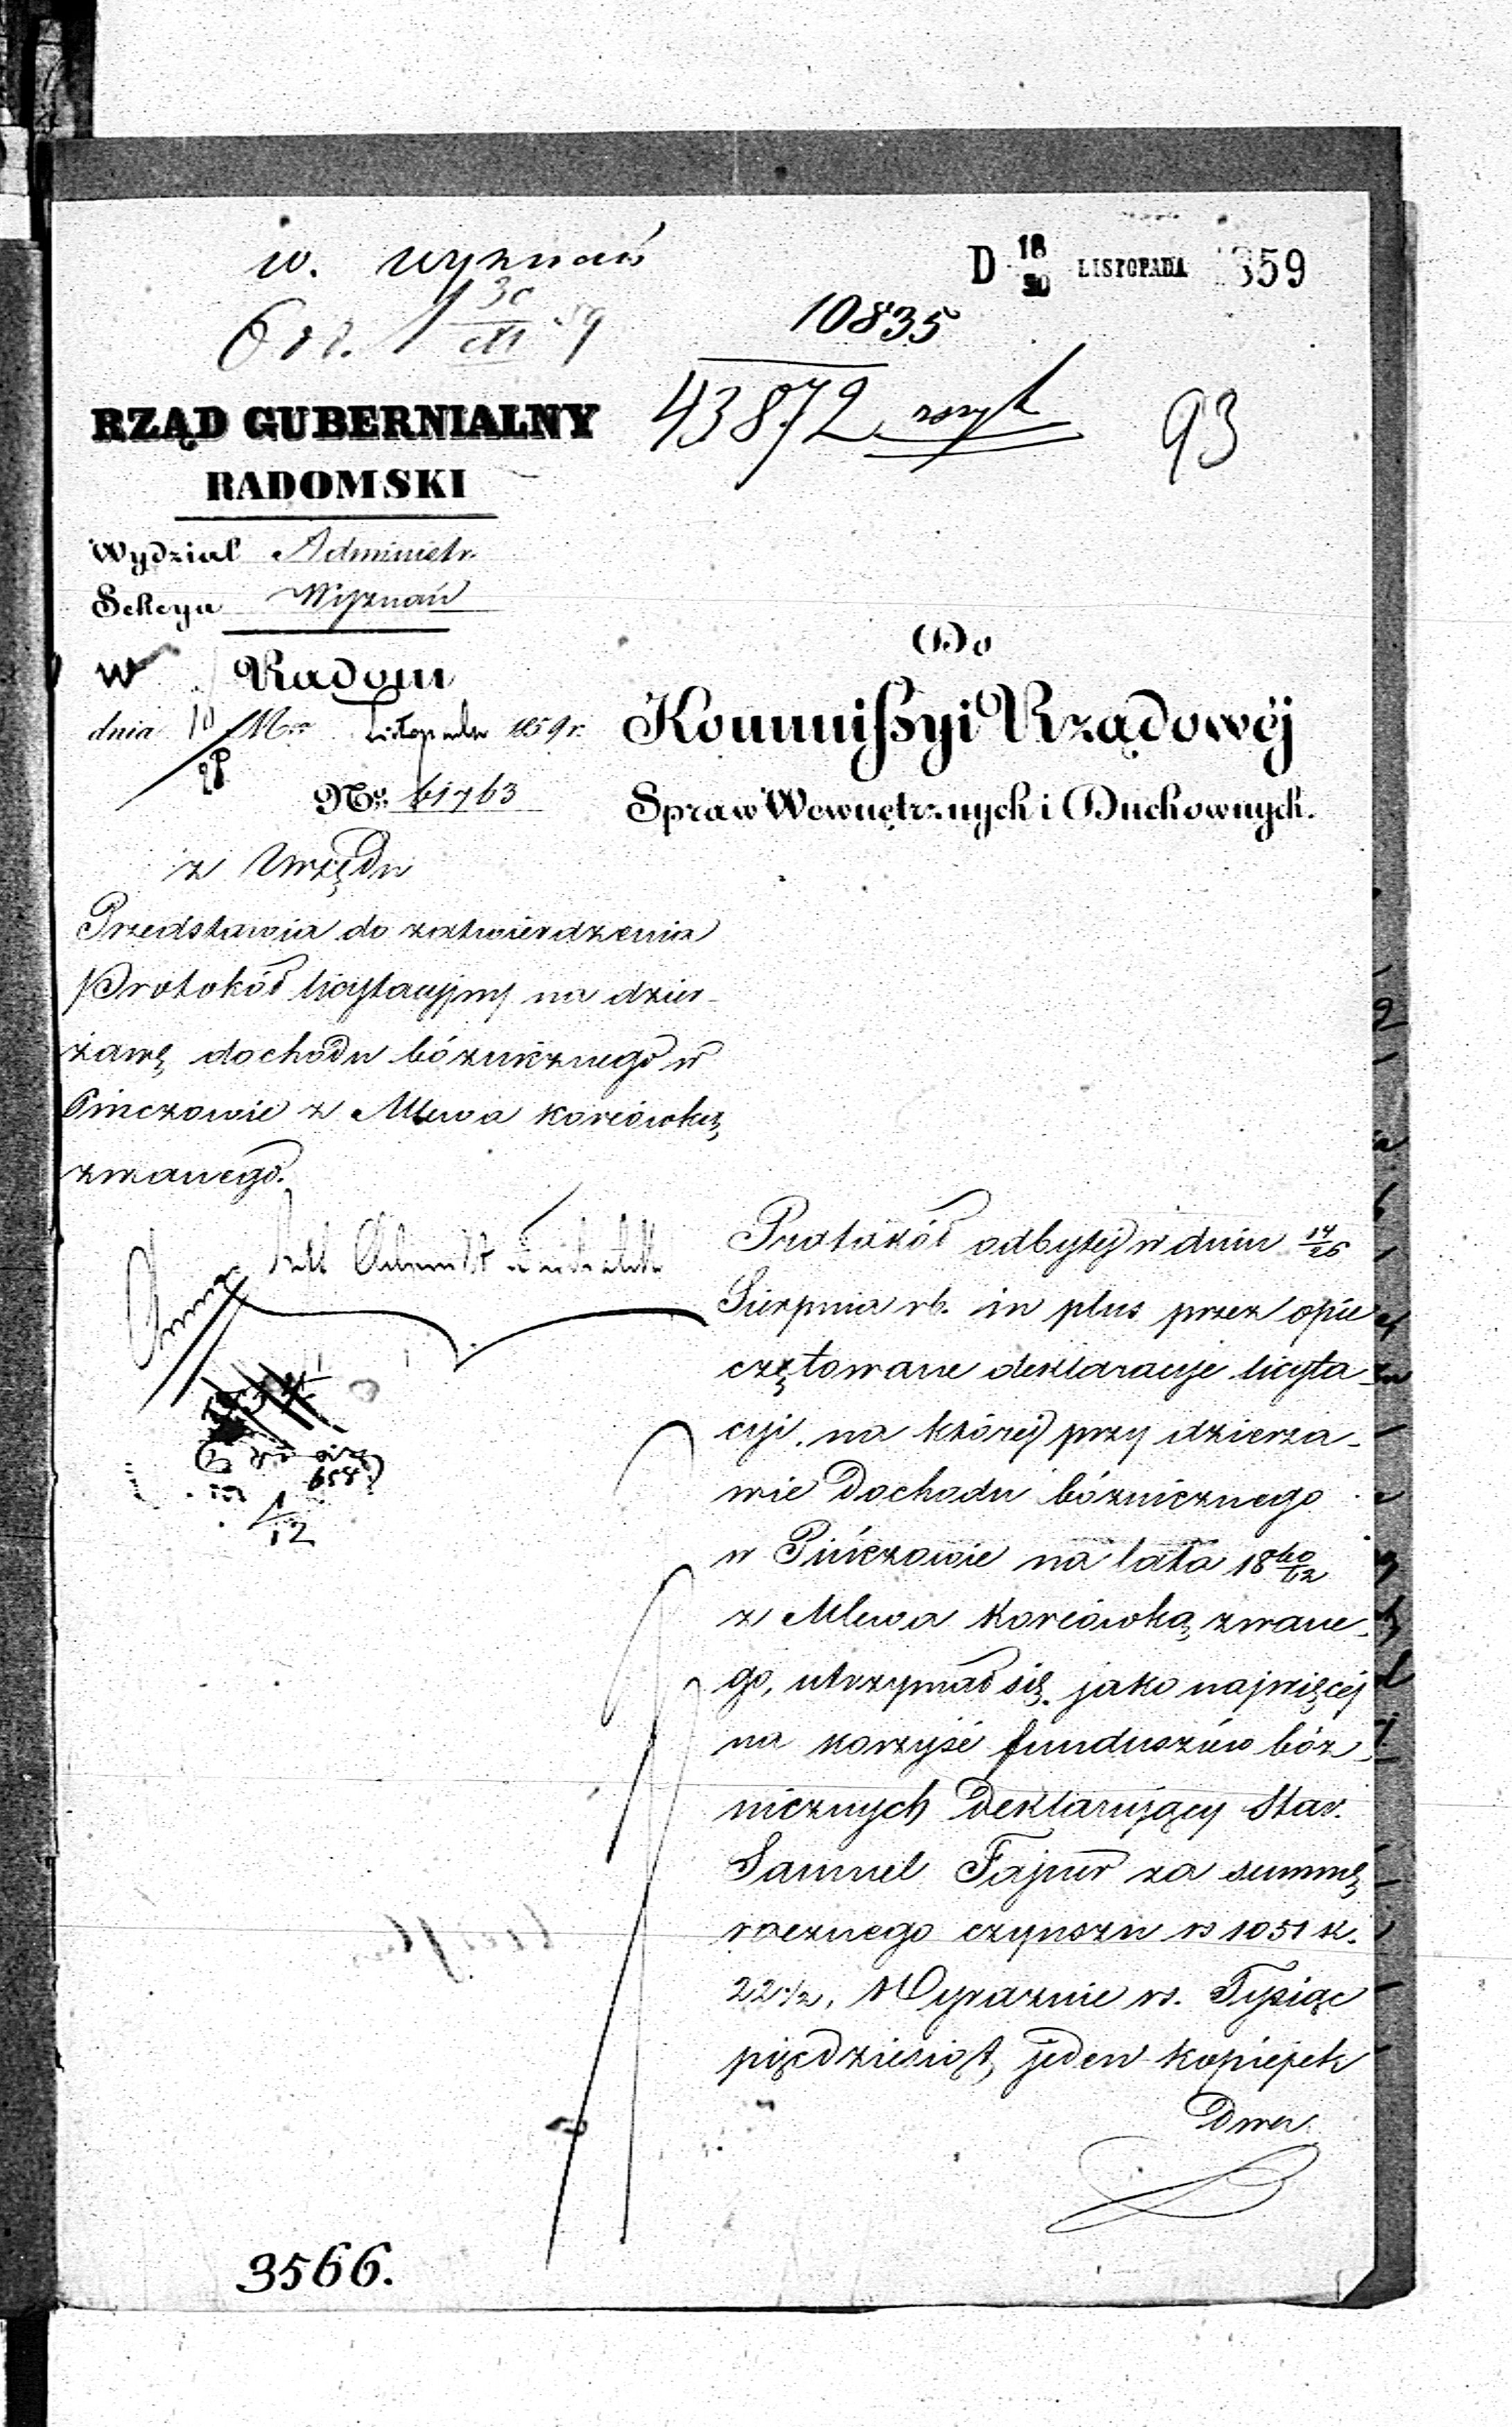 w. wyznań
D 18/30 LISTOPADA 1859
10835
43872
93
RZĄD GUBERNIALNY
RADOMSKI
Wydział Administr.
Sekcya Wyznań
w Radom
dnia 10 Mca Listopada 1859 r.
No. 61763
Do
Kommissyi Rządowéj
Spraw Wewnętrznych i Duchownych.
z Urzędu
Przedstawia do zatwierdzenia
Protokół licytacyjny na dzier-
żawę dochodu bóźnicznego w
Pinczowie z Mlewa korcówką
zwanego.
Protokół odbytej w dniu 14/26
Sierpnia rb. in plus przez opie
czętowane deklaracye licyta-
cyi, na której przy dzierża-
wie Dochodu bóżnicznego
w Pińczowie na lata 1860/62
z Mlewa Korcówką zwane-
go, utrzymał się, jako najwięcej
na korzyść funduszów bóż
nicznych Deklarujący Star.
Samuel Fajner za summę
rocznego czynszu rs 1051 k.
22 1/2, Wyraznie rs. Tysiąc
pięćdziesiąt jeden kopiejek
Dwa
3566.